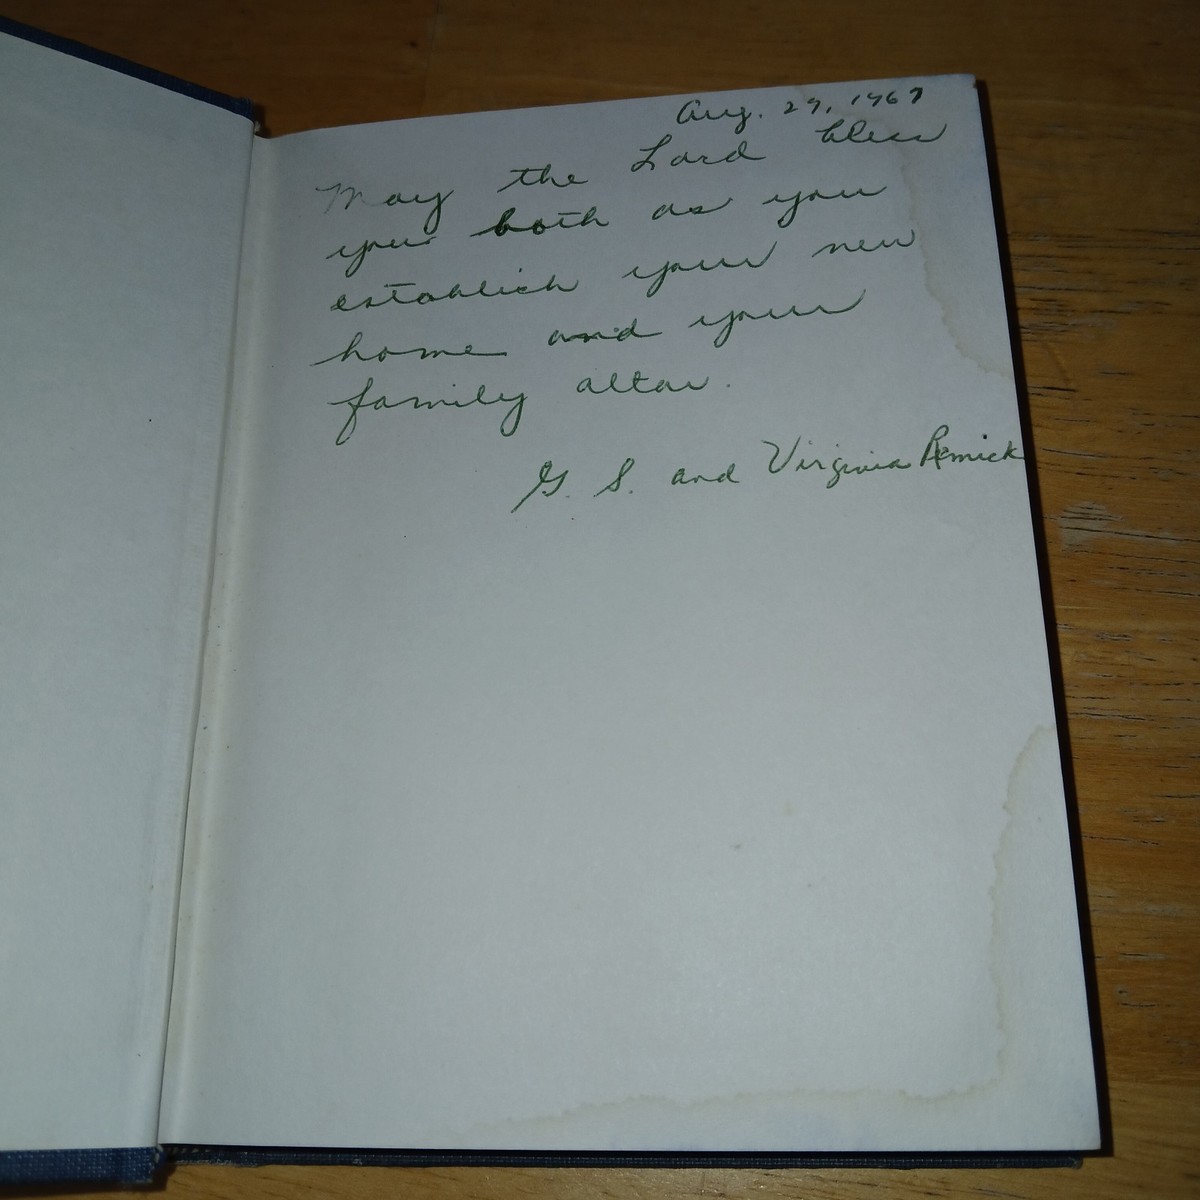 Aug. 29, 1967
May the Lord bless
you both as you
establish your new
home and your
family altar.
G. S. and Virginia Remick